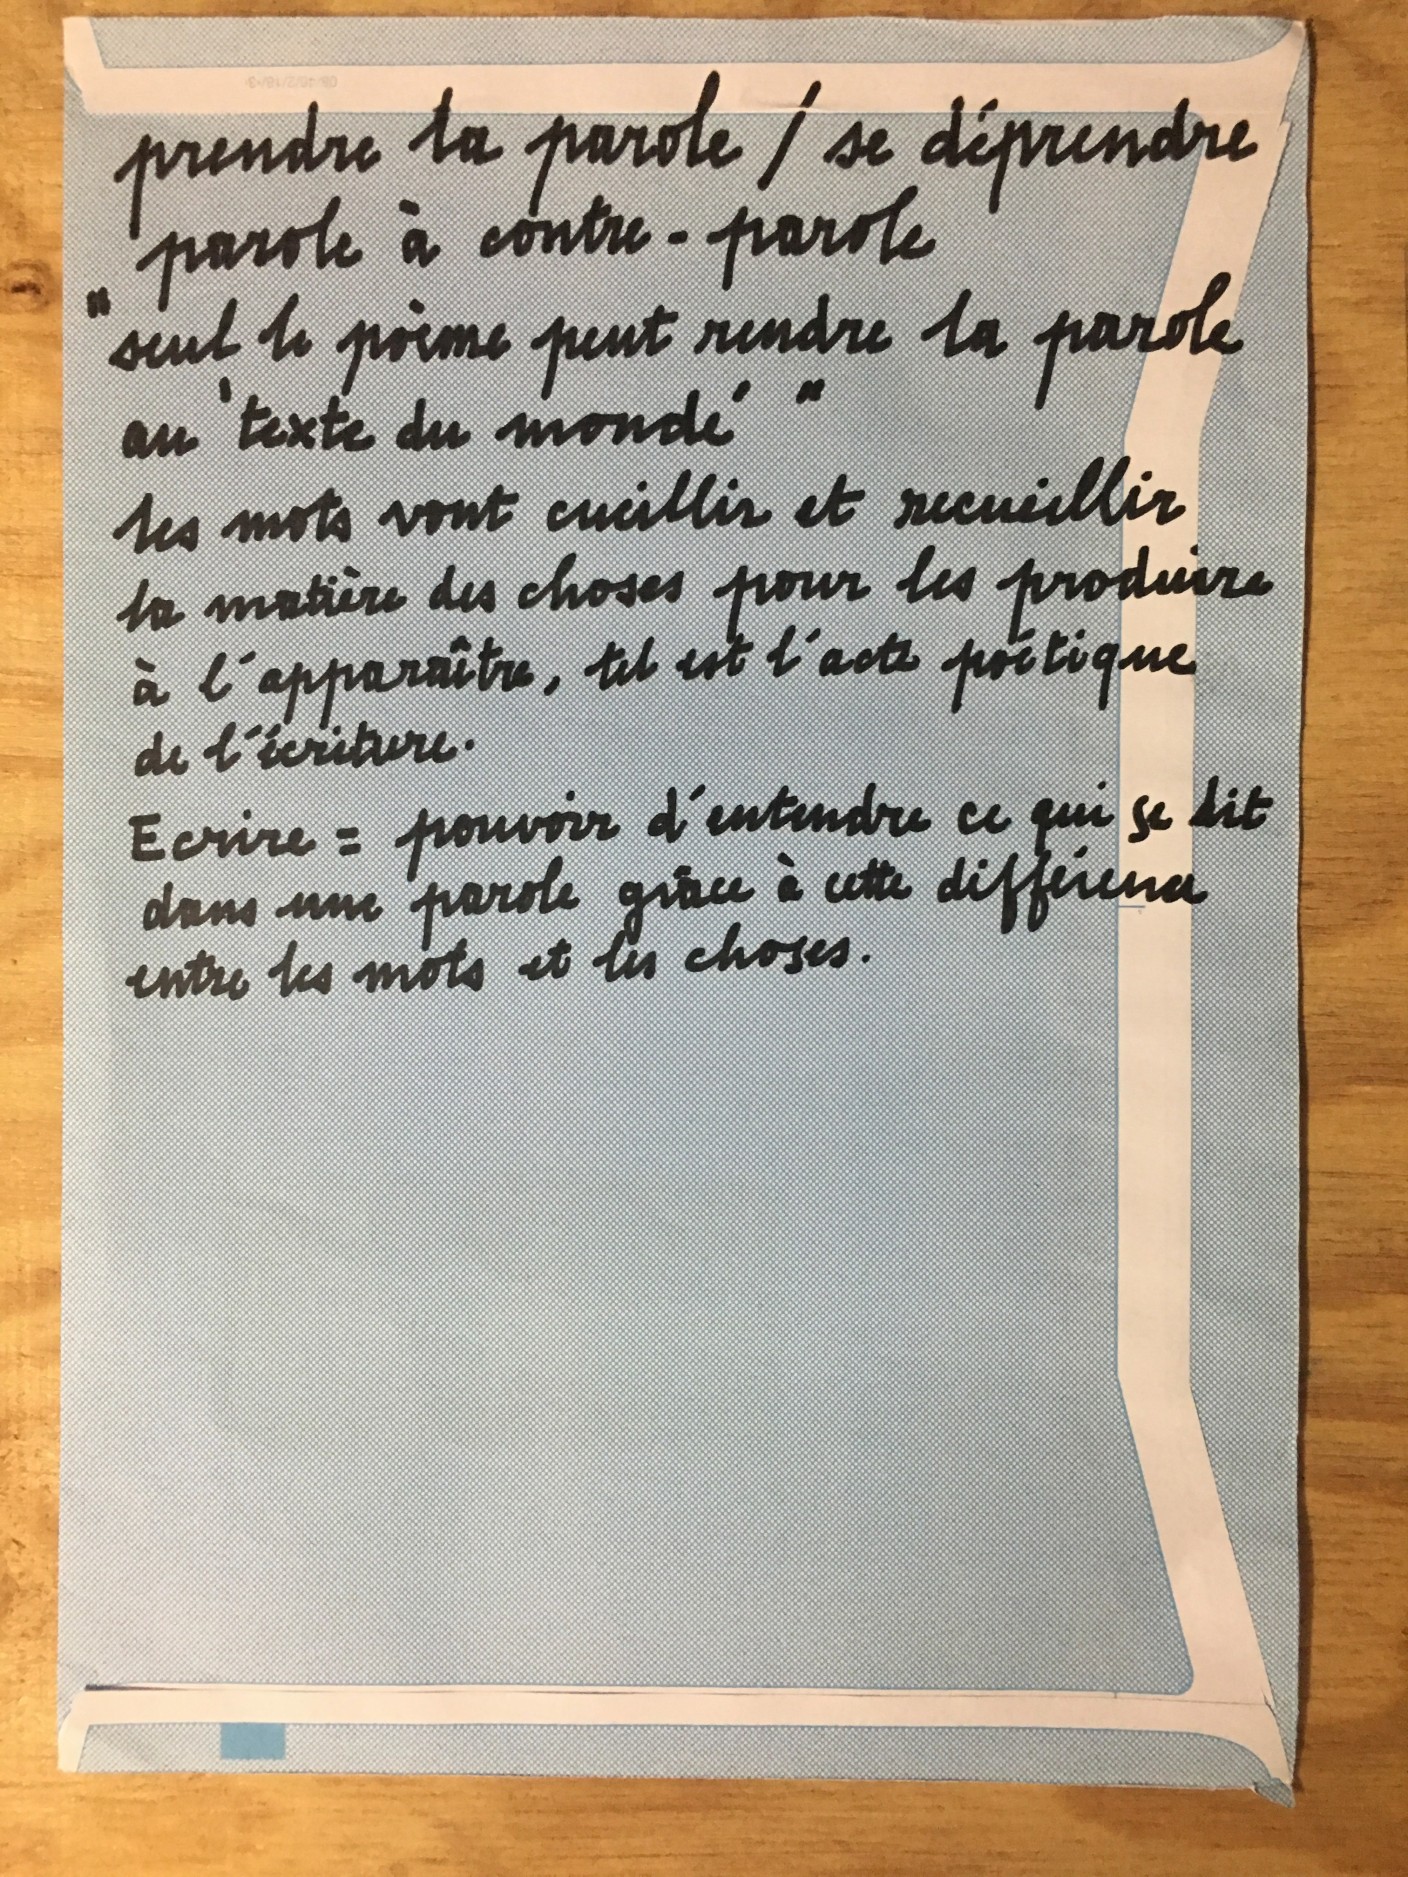 prendre la parole / se déprendre
parole à contre-parole
"seul le poème peut rendre la parole
au 'texte du monde' "
les mots vont cueillir et recueillir
la matière des choses pour les produire
à l'apparaître, tel est l'acte poétique
de l'écriture.
Ecrire = pouvoir d'entendre ce qui se dit
dans une parole grâce à cette différence
entre les mots et les choses.